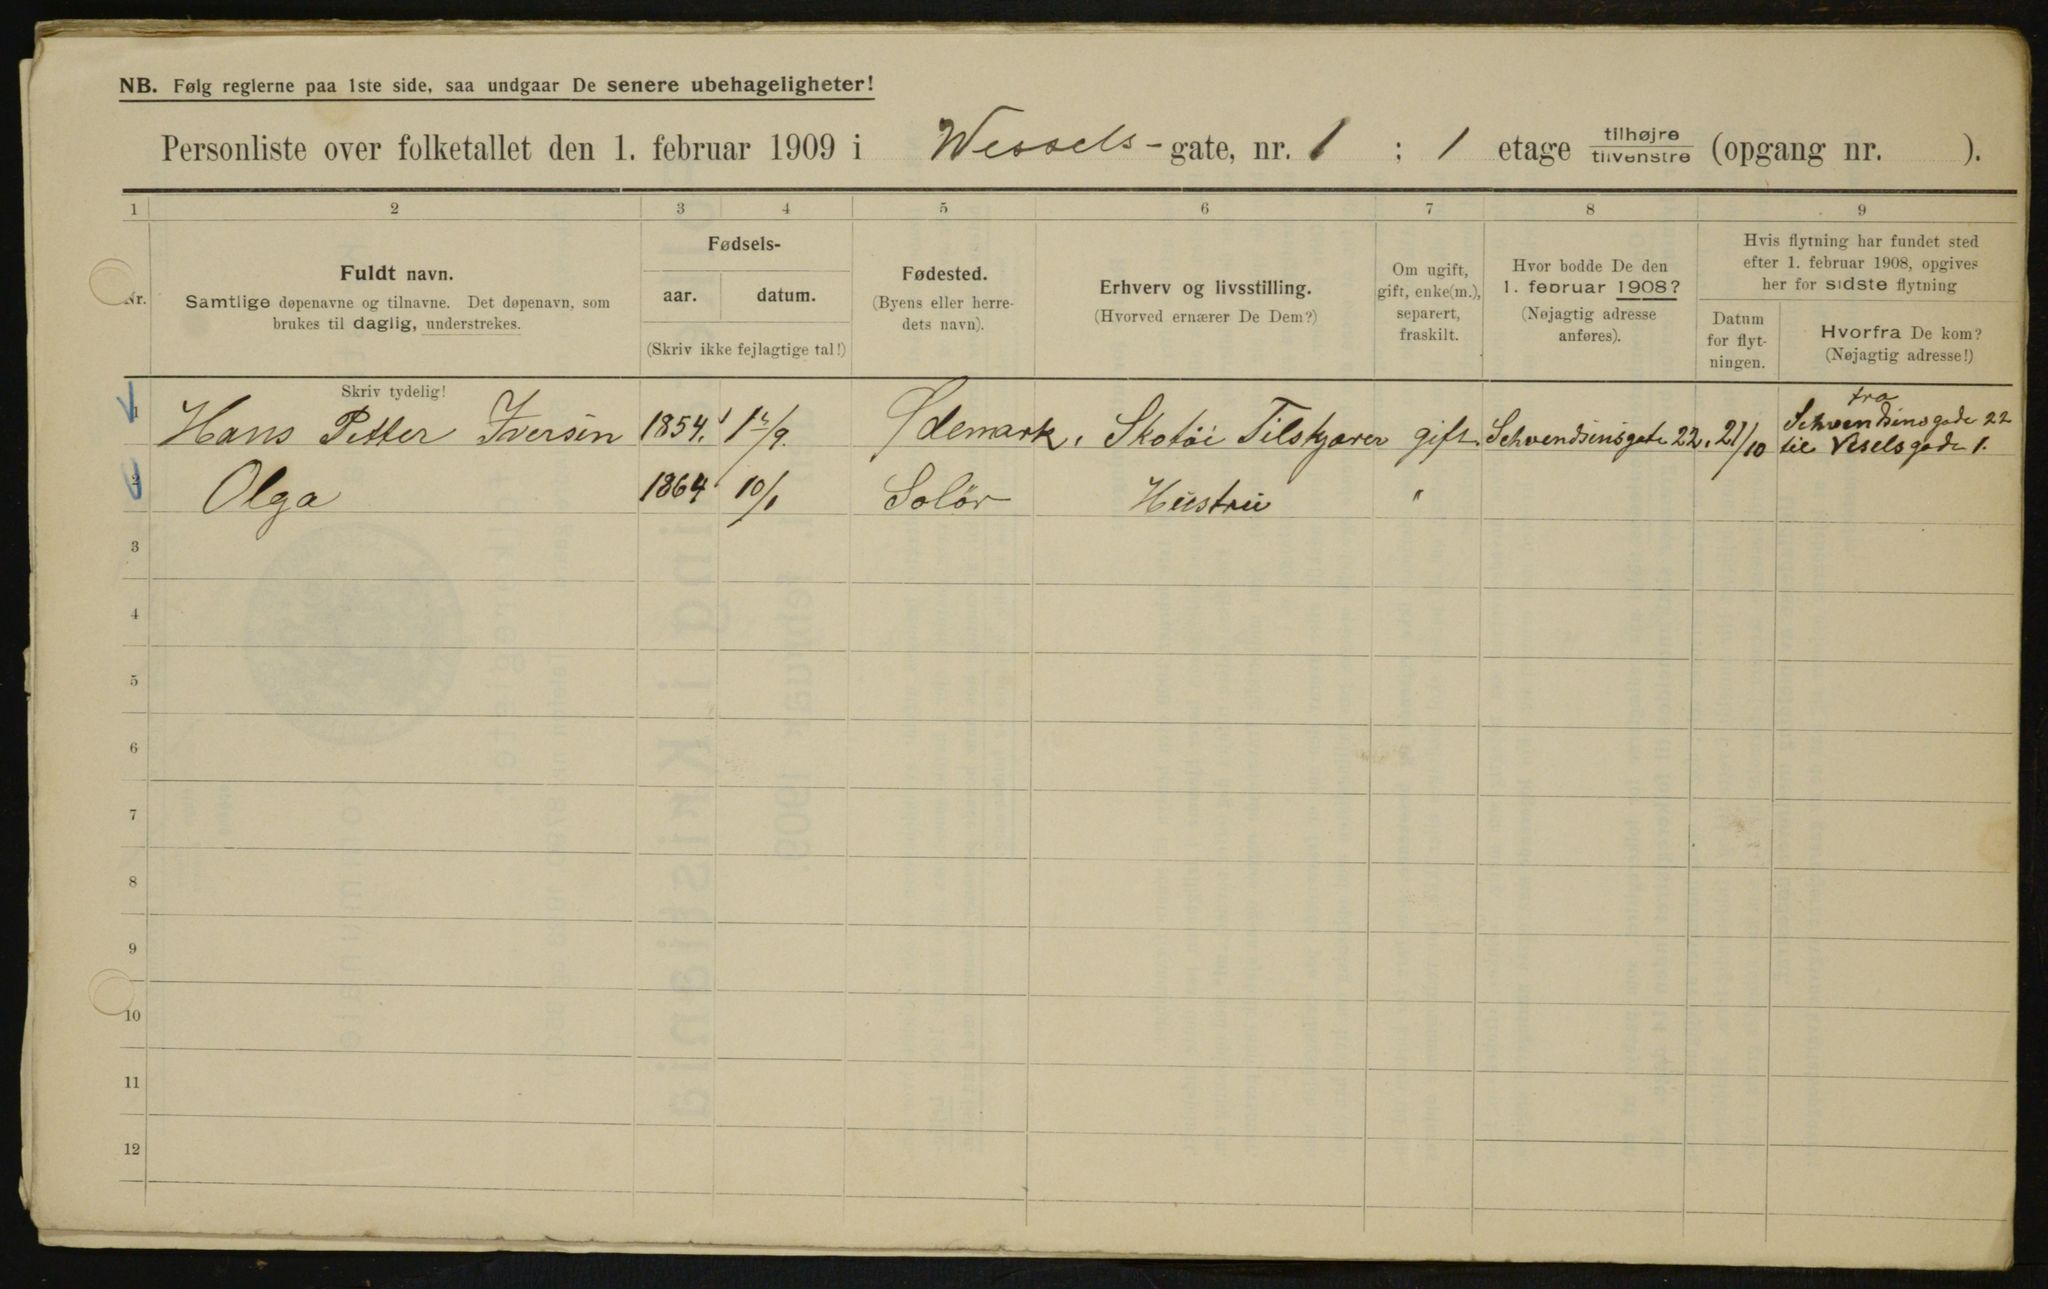 NB. Følg reglerne paa 1ste side, saa undgaar De senere ubehageligheter!
Personliste over folketallet den 1. februar 1909 i Wessels-gate, nr. 1 ; 1 etage tilhøjre/tilvenstre (opgang nr. ).
1 2 3 4 5 6 7 8 9
Nr.
Fuldt navn.
Samtlige døpenavne og tilnavne. Det døpenavn, som
brukes til daglig, understrekes.
Skriv tydelig!
Fødsels-
aar. datum.
(Skriv ikke fejlagtige tal!)
Fødested.
(Byens eller herre-
dets navn).
Erhverv og livsstilling.
(Hvorved ernærer De Dem?)
Om ugift,
gift, enke(m.),
separert,
fraskilt.
Hvor bodde De den
1. februar 1908?
(Nøjagtig adresse
anføres).
Hvis flytning har fundet sted
efter 1. februar 1908, opgives
her for sidste flytning
Datum
for flyt-
ningen.
Hvorfra De kom?
(Nøjagtig adresse!)
fra
1 Hans Petter Iversen 1854. /9. Ødemark. Skotöi Tilskjærer gift. Schvendsensgate 22. 21/10 Schvendsensgade 22
til Veselsgade 1.
2 Olga 1864 10/1 Solör Hustru "
3
4
5
6
7
8
9
10
11
12